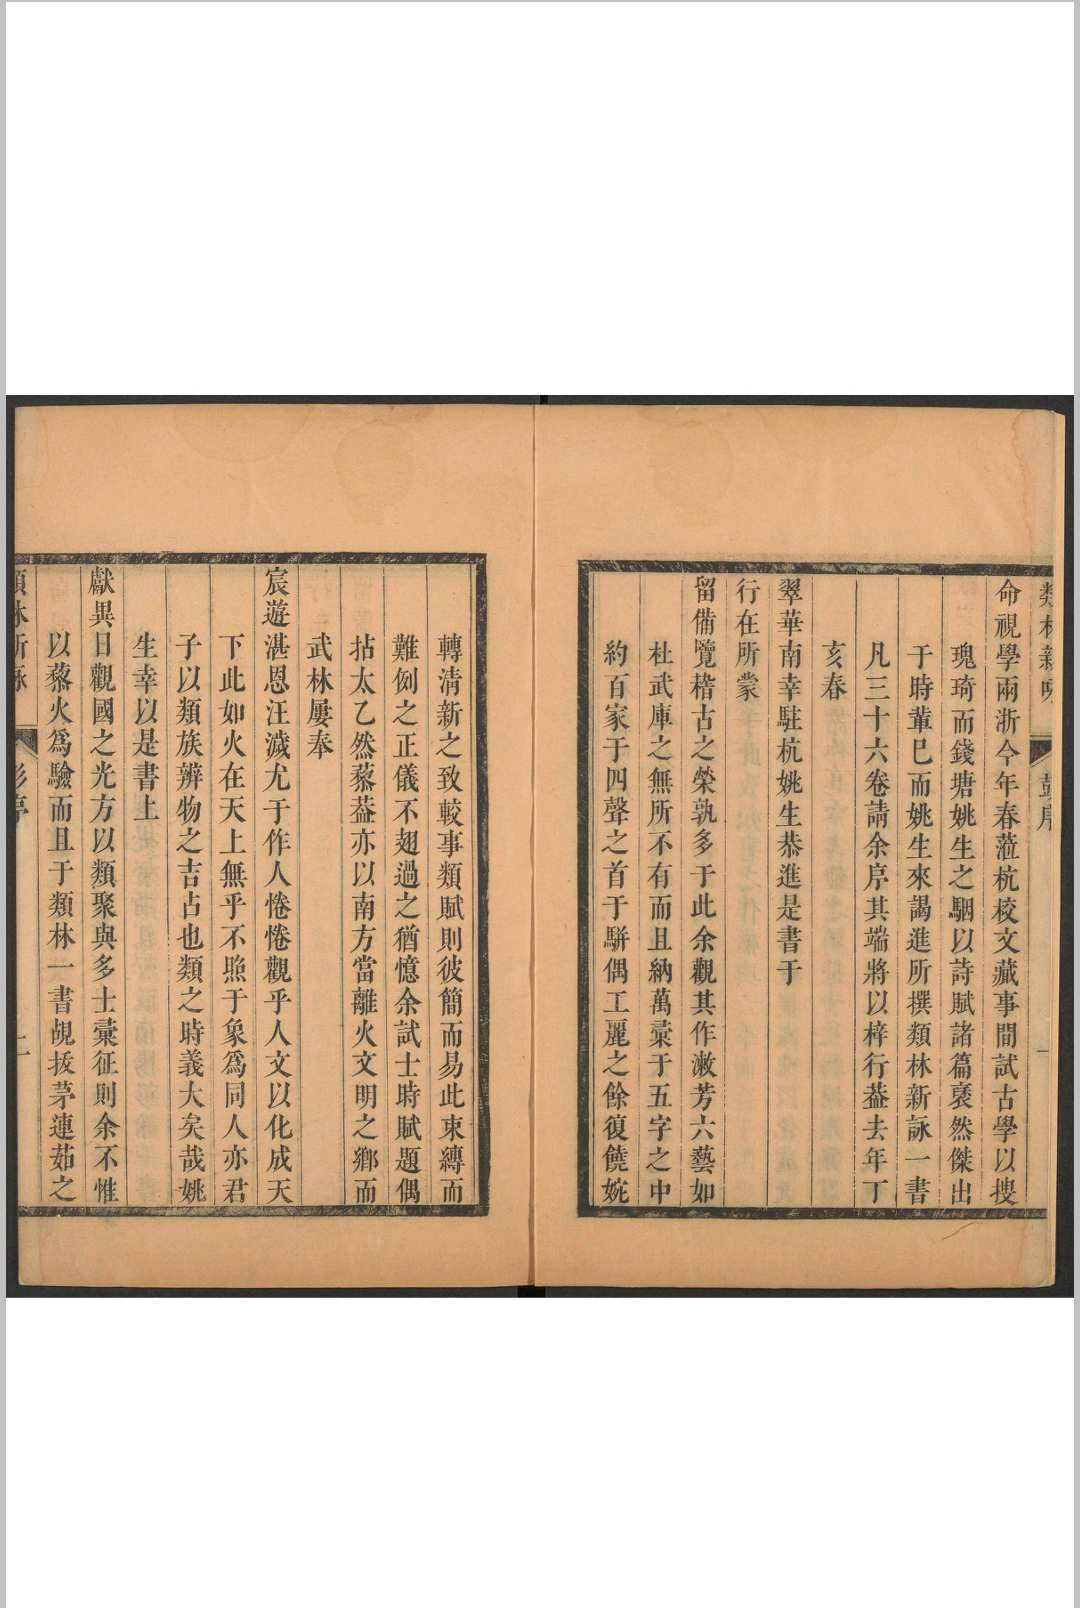 類林新咏
彭序
一
命視學兩浙今年春蒞杭校文蕆事間試古學以搜
瑰琦而錢塘姚生之駰以詩賦諸篇裦然傑出
于時輩巳而姚生來謁進所撰類林新詠一書
凡三十六卷請余序其端將以梓行葢去年丁
亥春
翠華南幸駐杭姚生恭進是書于
行在所蒙
留備覽稽古之榮孰多于此余觀其作漱芳六藝如
杜武庫之無所不有而且納萬彚于五字之中
約百家于四聲之首于駢偶工麗之餘復饒婉
轉清新之致較事類賦則彼簡而易此束縛而
難例之正儀不翅過之猶憶余試士時賦題偶
拈太乙然藜葢亦以南方當離火文明之鄉而
武林屢奉
宸遊湛恩汪濊尤于作人惓惓觀乎人文以化成天
下此如火在天上無乎不照于象爲同人亦君
子以類族辨物之吉占也類之時義大矣哉姚
生幸以是書上
獻異日觀國之光方以類聚與多士彚征則余不惟
以藜火爲驗而且于類林一書覘拔茅連茹之